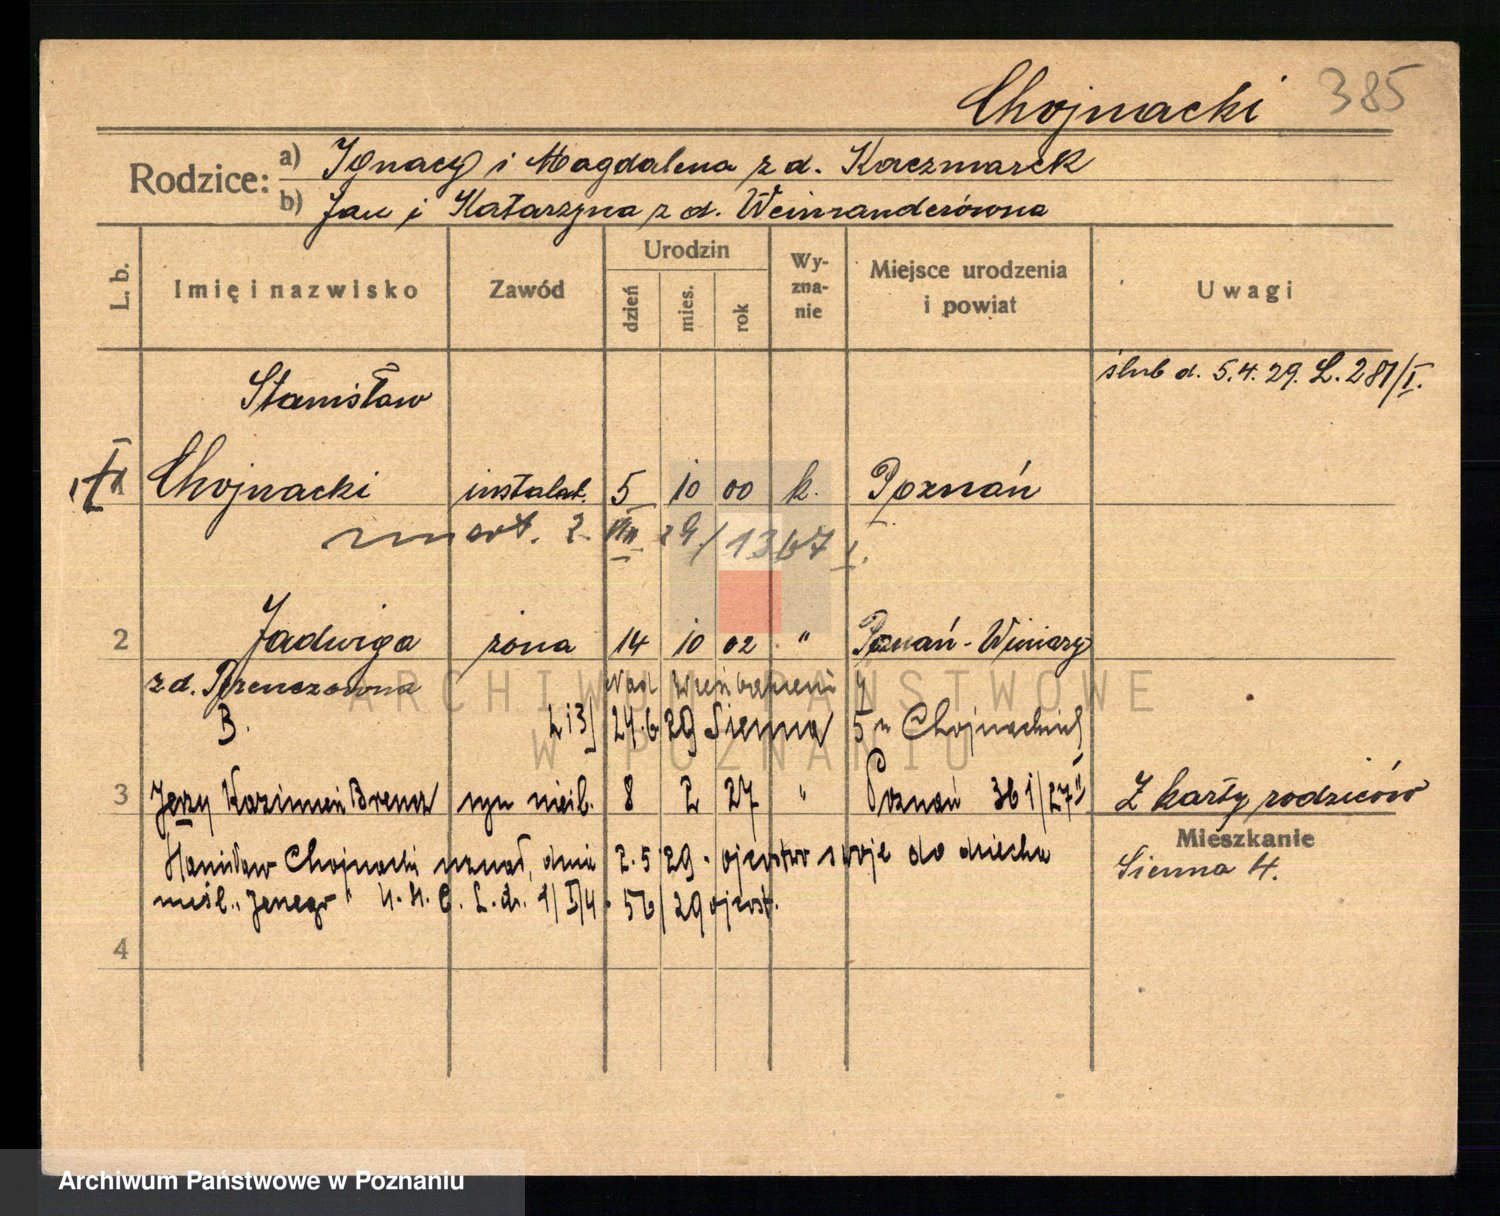 Chojnacki 385
Rodzice: a) Ignacy i Magdalena z d. Kaczmarek
b) Jan i Katarzyna z d. Weinzanderówna
L. b. Imię i nazwisko Zawód Urodzin dzień mies. rok Wyznanie Miejsce urodzenia i powiat Uwagi
Stanisław ślub d. 5.4.29. L. 281/I.
Chojnacki instalat. 5 10 00 k. Poznań
zmart. 2 VIII 29 / 1367 I.
2 Jadwiga żona 14 10 02 " Poznań-Winiary
z d.
B. 2 i 3] 24.6 29 Sienna 5 u Chojnackich
3 Jerzy Kazimierz Brencz syn nieśl. 8 2 27 " Poznań 361/27 II Z karty rodziców
Stanisław Chojnacki uznał, dnia 2.5.29. ojcostwo swoje do dziecka
nieśl. "Jerzego" U. S. C. L. dz. 1/I/4. 56/29 ojcost.
Mieszkanie
Sienna 4.
4
ARCHIWUM PAŃSTWOWE
W POZNANIU
Archiwum Państwowe w Poznaniu